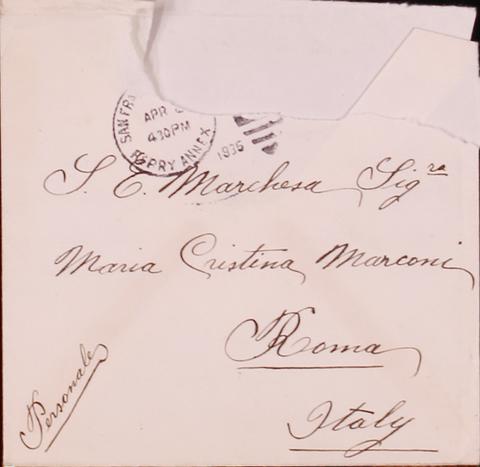 SAN FR
APR
430 PM
FERRY ANNEX
1935
S. E. Marchesa Sig.ra
Maria Cristina Marconi
Roma
Italy
Personale